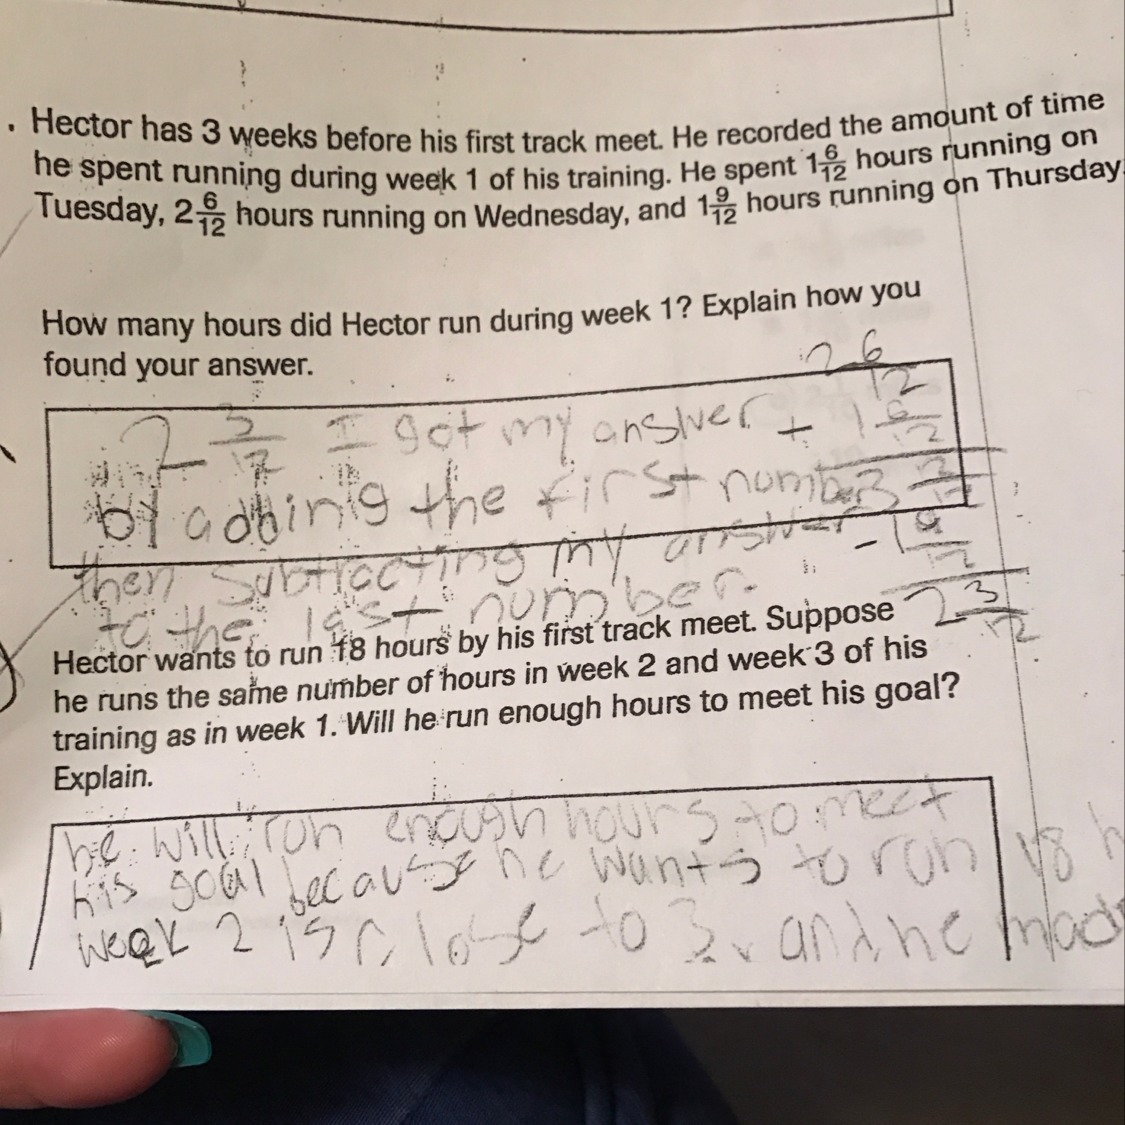 . Hector has 3 weeks before his first track meet. He recorded the amount of time
he spent running during week 1 of his training. He spent 1 6/12 hours running on
Tuesday, 2 6/12 hours running on Wednesday, and 1 9/12 hours running on Thursday.
How many hours did Hector run during week 1? Explain how you
found your answer.
2 6/12
2 3/12 I got my answer + 1 6/12
by adding the first number 3
then subtracting my answer - 1 9/12
to the last number. 2 3/12
Hector wants to run 18 hours by his first track meet. Suppose
he runs the same number of hours in week 2 and week 3 of his
training as in week 1. Will he run enough hours to meet his goal?
Explain.
he will run enough hours to meet
his goal because he wants to run 18 h
week 2 is close to 3. and he mad